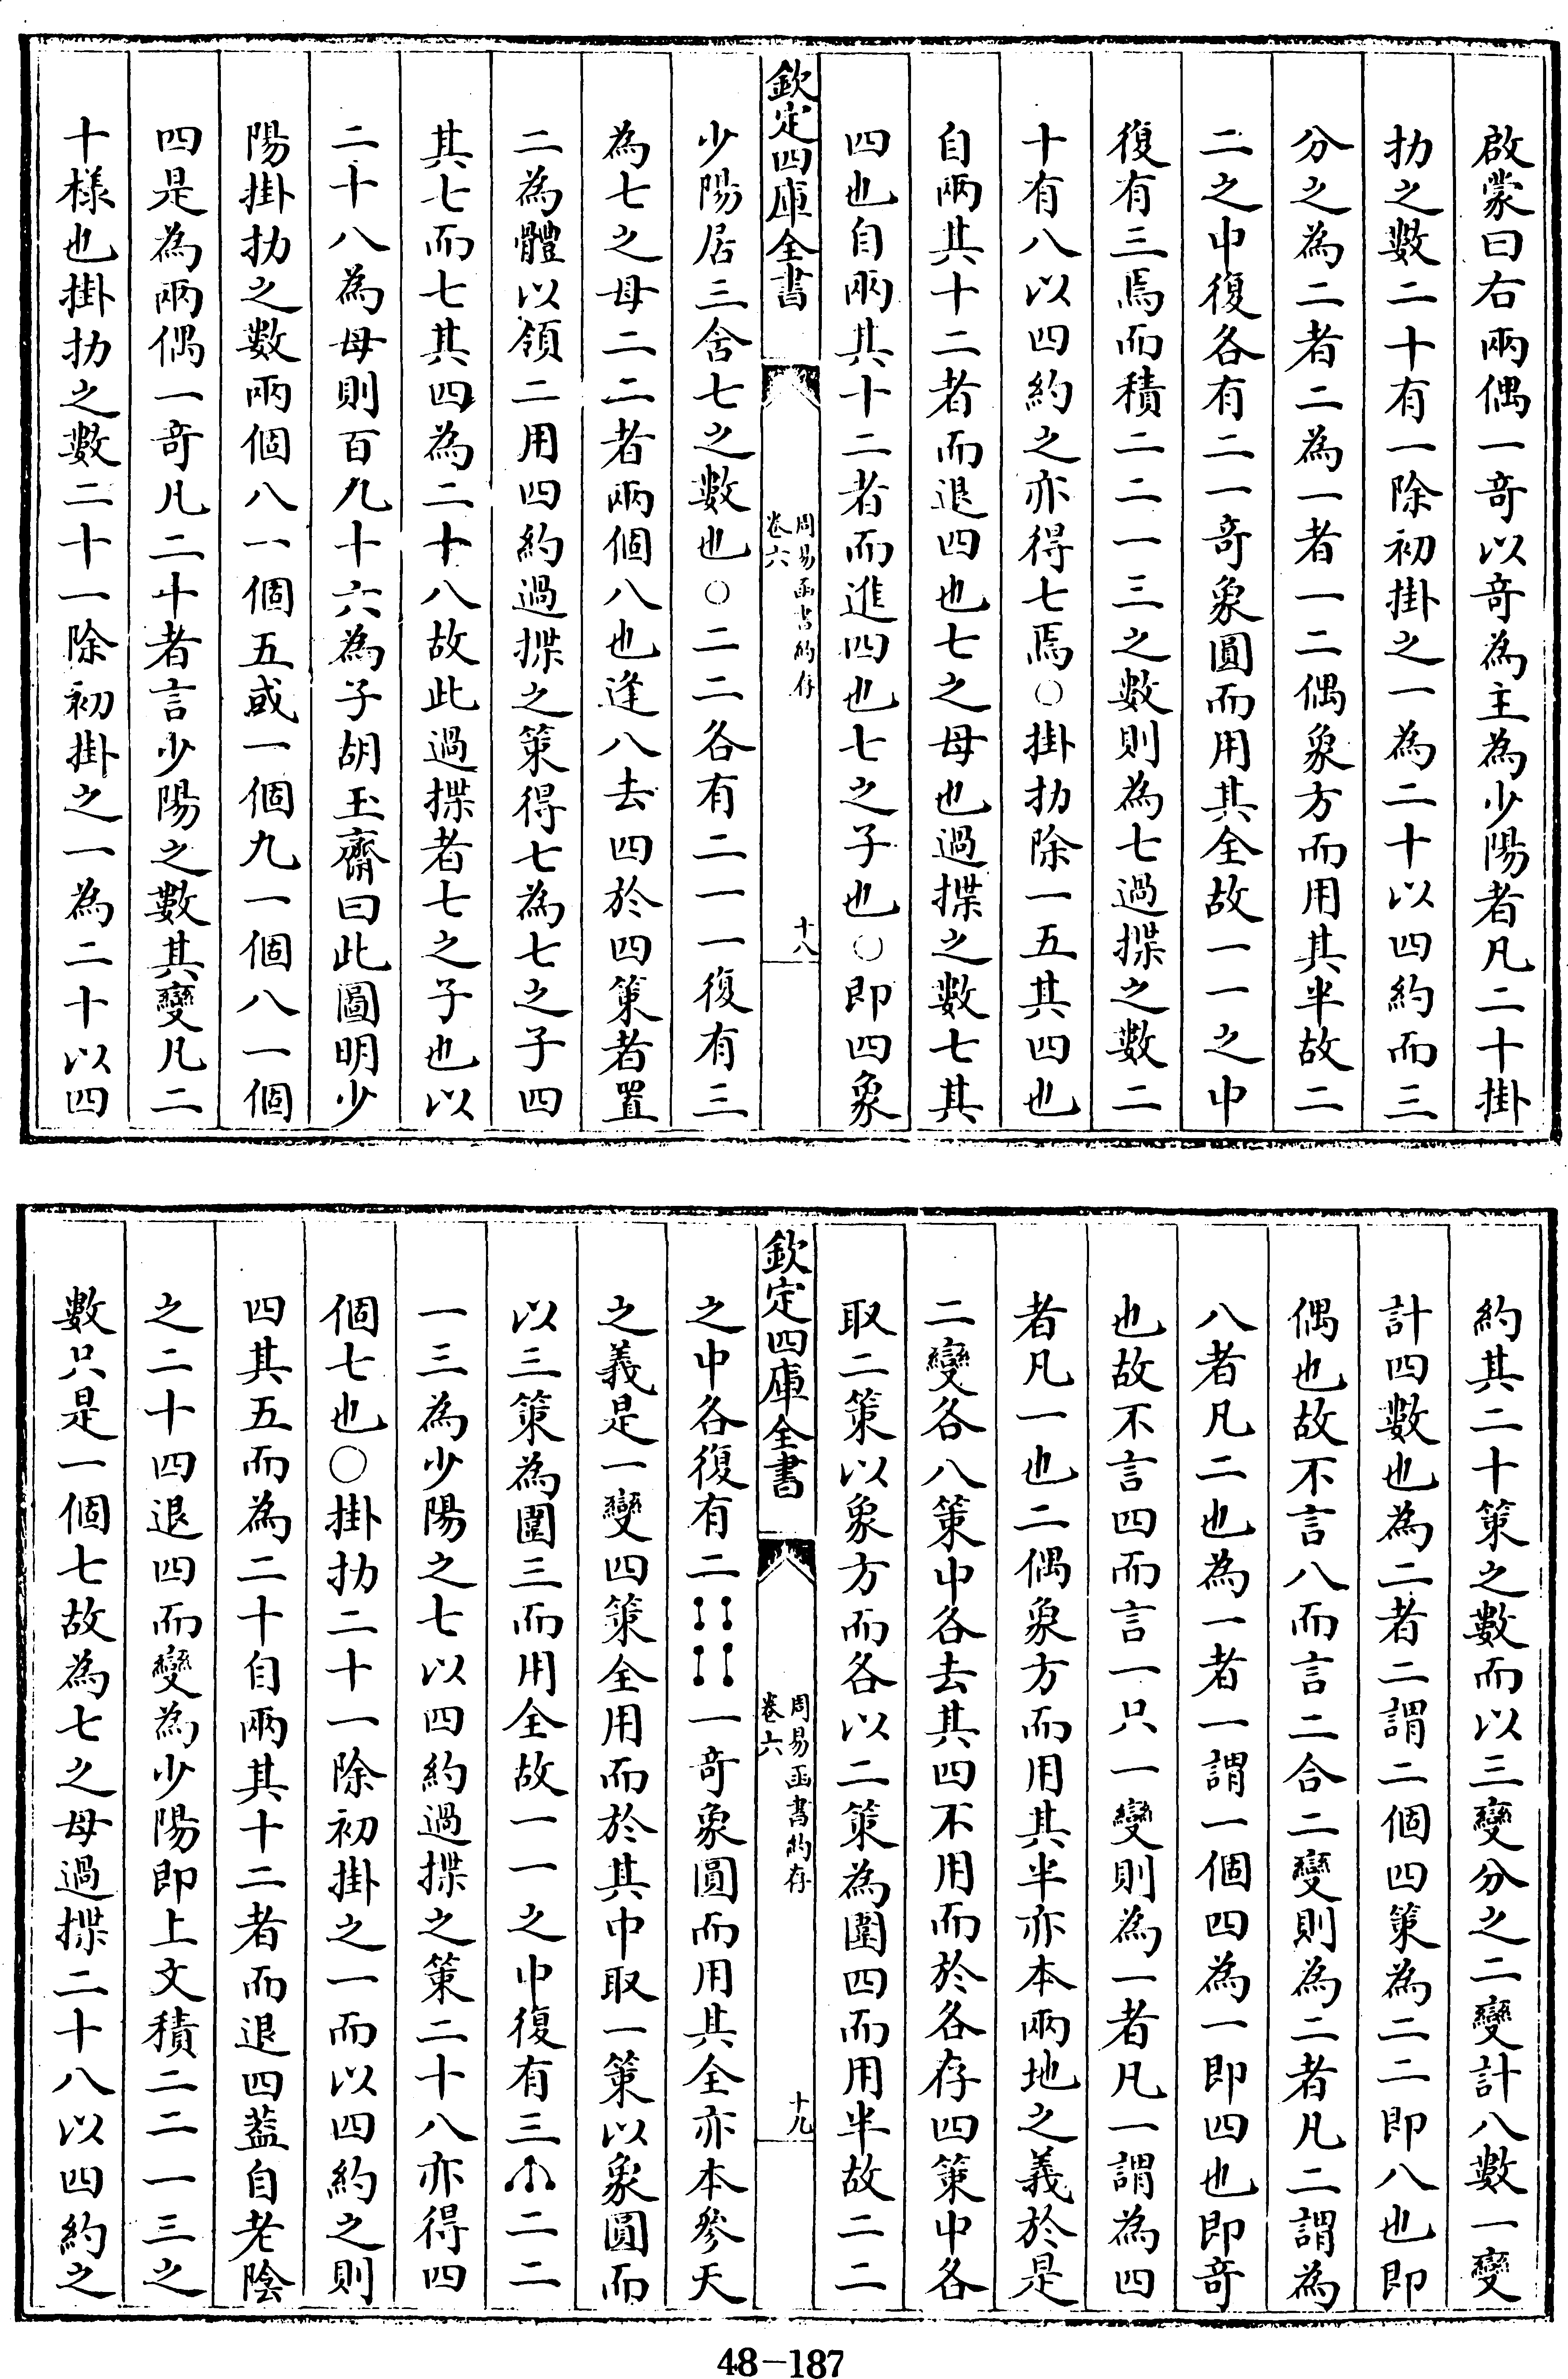 啟蒙曰右兩偶一奇以奇為主為少陽者凡二十掛
扐之數二十有一除初掛之一為二十以四約而三
分之為二者二為一者一二偶象方而用其半故二
二之中復各有二一奇象圓而用其全故一一之中
復有三焉而積二二一三之數則為七過揲之數二
十有八以四約之亦得七焉○掛扐除一五其四也
自兩其十二者而退四也七之母也過揲之數七其
四也自兩其十二者而進四也七之子也○即四象
欽定四庫全書
周易函書約存
卷六
十八
少陽居三含七之數也○二二各有二一一復有三
為七之母二二者兩個八也逢八去四於四策者置
二為體以領二用四約過揲之策得七為七之子四
其七而七其四為二十八故此過揲者七之子也以
二十八為母則百九十六為子胡玉齋曰此圖明少
陽掛扐之數兩個八一個五或一個九一個八一個
四是為兩偶一奇凡二十者言少陽之數其變凡二
十樣也掛扐之數二十一除初掛之一為二十以四
約其二十策之數而以三變分之二變計八數一變
計四數也為二者二謂二個四策為二二即八也即
偶也故不言八而言二合二變則為二者凡二謂為
八者凡二也為一者一謂一個四為一即四也即奇
也故不言四而言一只一變則為一者凡一謂為四
者凡一也二偶象方而用其半亦本兩地之義於是
二變各八策中各去其四不用而於各存四策中各
取二策以象方而各以二策為圍四而用半故二二
欽定四庫全書
周易函書約存
卷六
十九
之中各復有二一奇象圓而用其全亦本參天
之義是一變四策全用而於其中取一策以象圓而
以三策為圍三而用全故一一之中復有三二二
一三為少陽之七以四約過揲之策二十八亦得四
個七也○掛扐二十一除初掛之一而以四約之則
四其五而為二十自兩其十二者而退四蓋自老陰
之二十四退四而變為少陽即上文積二二一三之
數只是一個七故為七之母過揲二十八以四約之
48-187